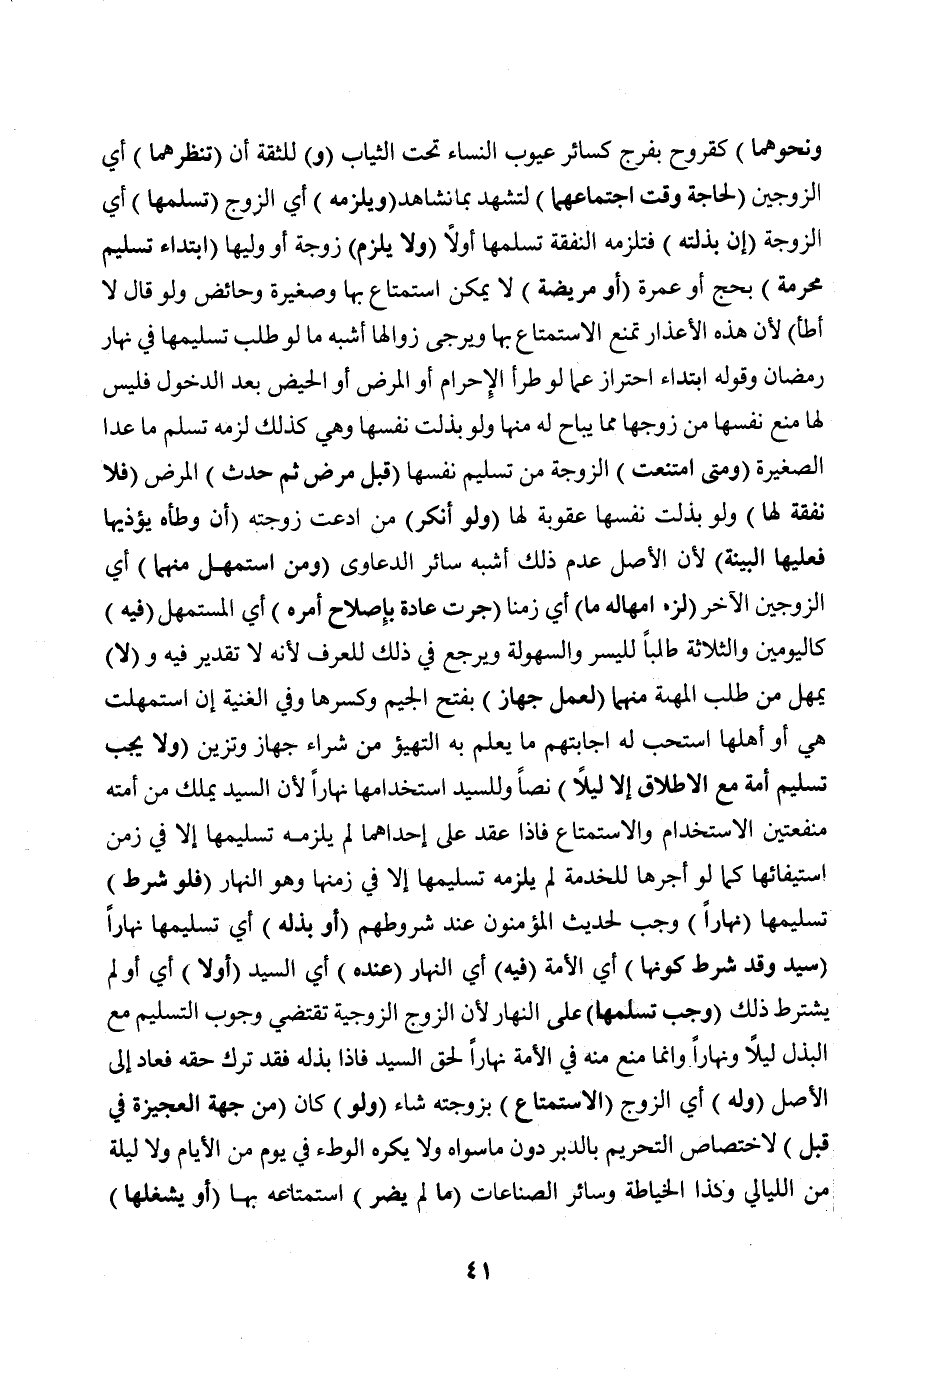 ونحوهما ) كقروح بفرج كسائر عيوب النساء تحت الثياب (و) للثقة أن (تنظرهما ) أي
الزوجين (لحاجة وقت اجتماعهما ) لتشهد بما نشاهد(ويلزمه ) أي الزوج (تسلمها ) أي
الزوجة (إن بذلته ) فتلزمه النفقة تسلمها أولاً (ولا يلزم) زوجة أو وليها (ابتداء تسليم
محرمة ) بحج أو عمرة (أو مريضة ) لا يمكن استمتاع بها وصغيرة وحائض ولو قال لا
أطأ) لأن هذه الأعذار تمنع الاستمتاع بها ويرجى زوالها أشبه ما لو طلب تسليمها في نهار
رمضان وقوله ابتداء احتراز عما لو طرأ الإحرام أو المرض أو الحيض بعد الدخول فليس
لها منع نفسها من زوجها مما يباح له منها ولو بذلت نفسها وهي كذلك لزمه تسلم ما عدا
الصغيرة (ومتى امتنعت ) الزوجة من تسليم نفسها (قبل مرض ثم حدث ) المرض (فلا
نفقة لها ) ولو بذلت نفسها عقوبة لها (ولو أنكر) من ادعت زوجته (أن وطأه يؤذيها
فعليها البينة) لأن الأصل عدم ذلك أشبه سائر الدعاوى (ومن استمهل منهما ) أي
الزوجين الآخر (لزه امهاله ما) أي زمنا (جرت عادة بإصلاح أمره ) أي المستمهل (فيه )
كاليومين والثلاثة طلباً لليسر والسهولة ويرجع في ذلك للعرف لأنه لا تقدير فيه و (لا)
يمهل من طلب المهبة منهما (لعمل جهاز ) بفتح الجيم وكسرها وفي الغنية إن استمهلت
هي أو أهلها استحب له اجابتهم ما يعلم به التهيؤ من شراء جهاز وتزين (ولا يجب
تسليم أمة مع الاطلاق إلا ليلًا ) نصاً وللسيد استخدامها نهاراً لأن السيد يملك من أمته
منفعتين الاستخدام والاستمتاع فاذا عقد على إحداهما لم يلزمه تسليمها إلا في زمن
استيفائها كما لو أجرها للخدمة لم يلزمه تسليمها إلا في زمنها وهو النهار (فلو شرط )
تسليمها (نهاراً ) وجب لحديث المؤمنون عند شروطهم (أو بذله ) أي تسليمها نهاراً
(سيد وقد شرط كونها ) أي الأمة (فيه) أي النهار (عنده ) أي السيد (أولا ) أي أو لم
يشترط ذلك (وجب تسلمها) على النهار لأن الزوج الزوجية تقتضي وجوب التسليم مع
البذل ليلًا ونهاراً وانما منع منه في الأمة نهاراً لحق السيد فاذا بذله فقد ترك حقه فعاد إلى
الأصل (وله ) أي الزوج (الاستمتاع ) بزوجته شاء (ولو ) كان (من جهة العجيزة في
قبل ) لاختصاص التحريم بالدبر دون ماسواه ولا يكره الوطء في يوم من الأيام ولا ليلة
من الليالي وكذا الخياطة وسائر الصناعات (ما لم يضر ) استمتاعه بها (أو يشغلها )
٤١